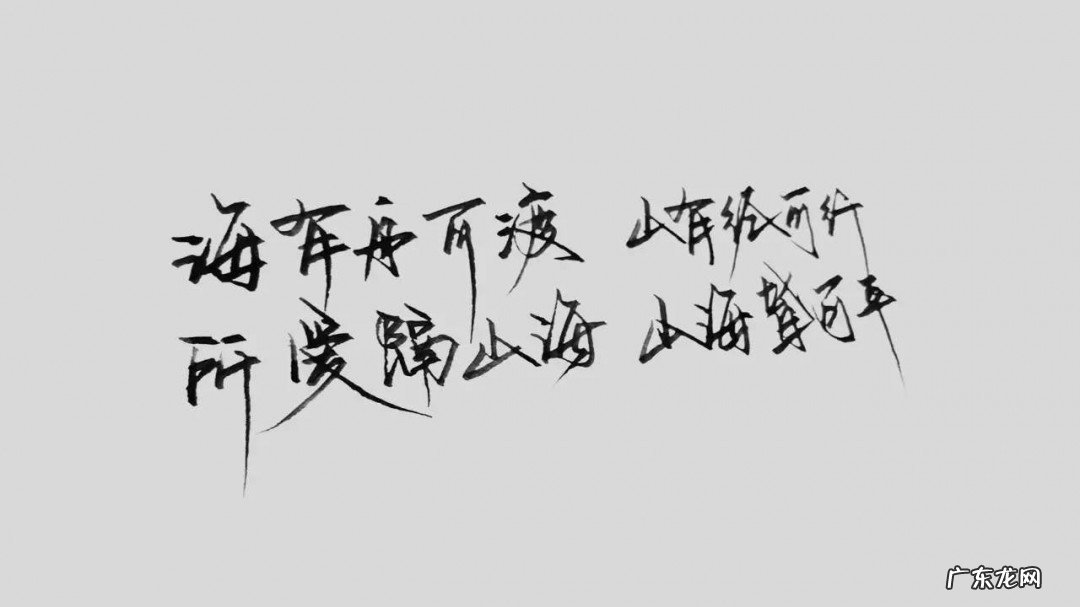 海有舟可渡 山有径可行
所爱隔山海 山海皆可平
广东龙网